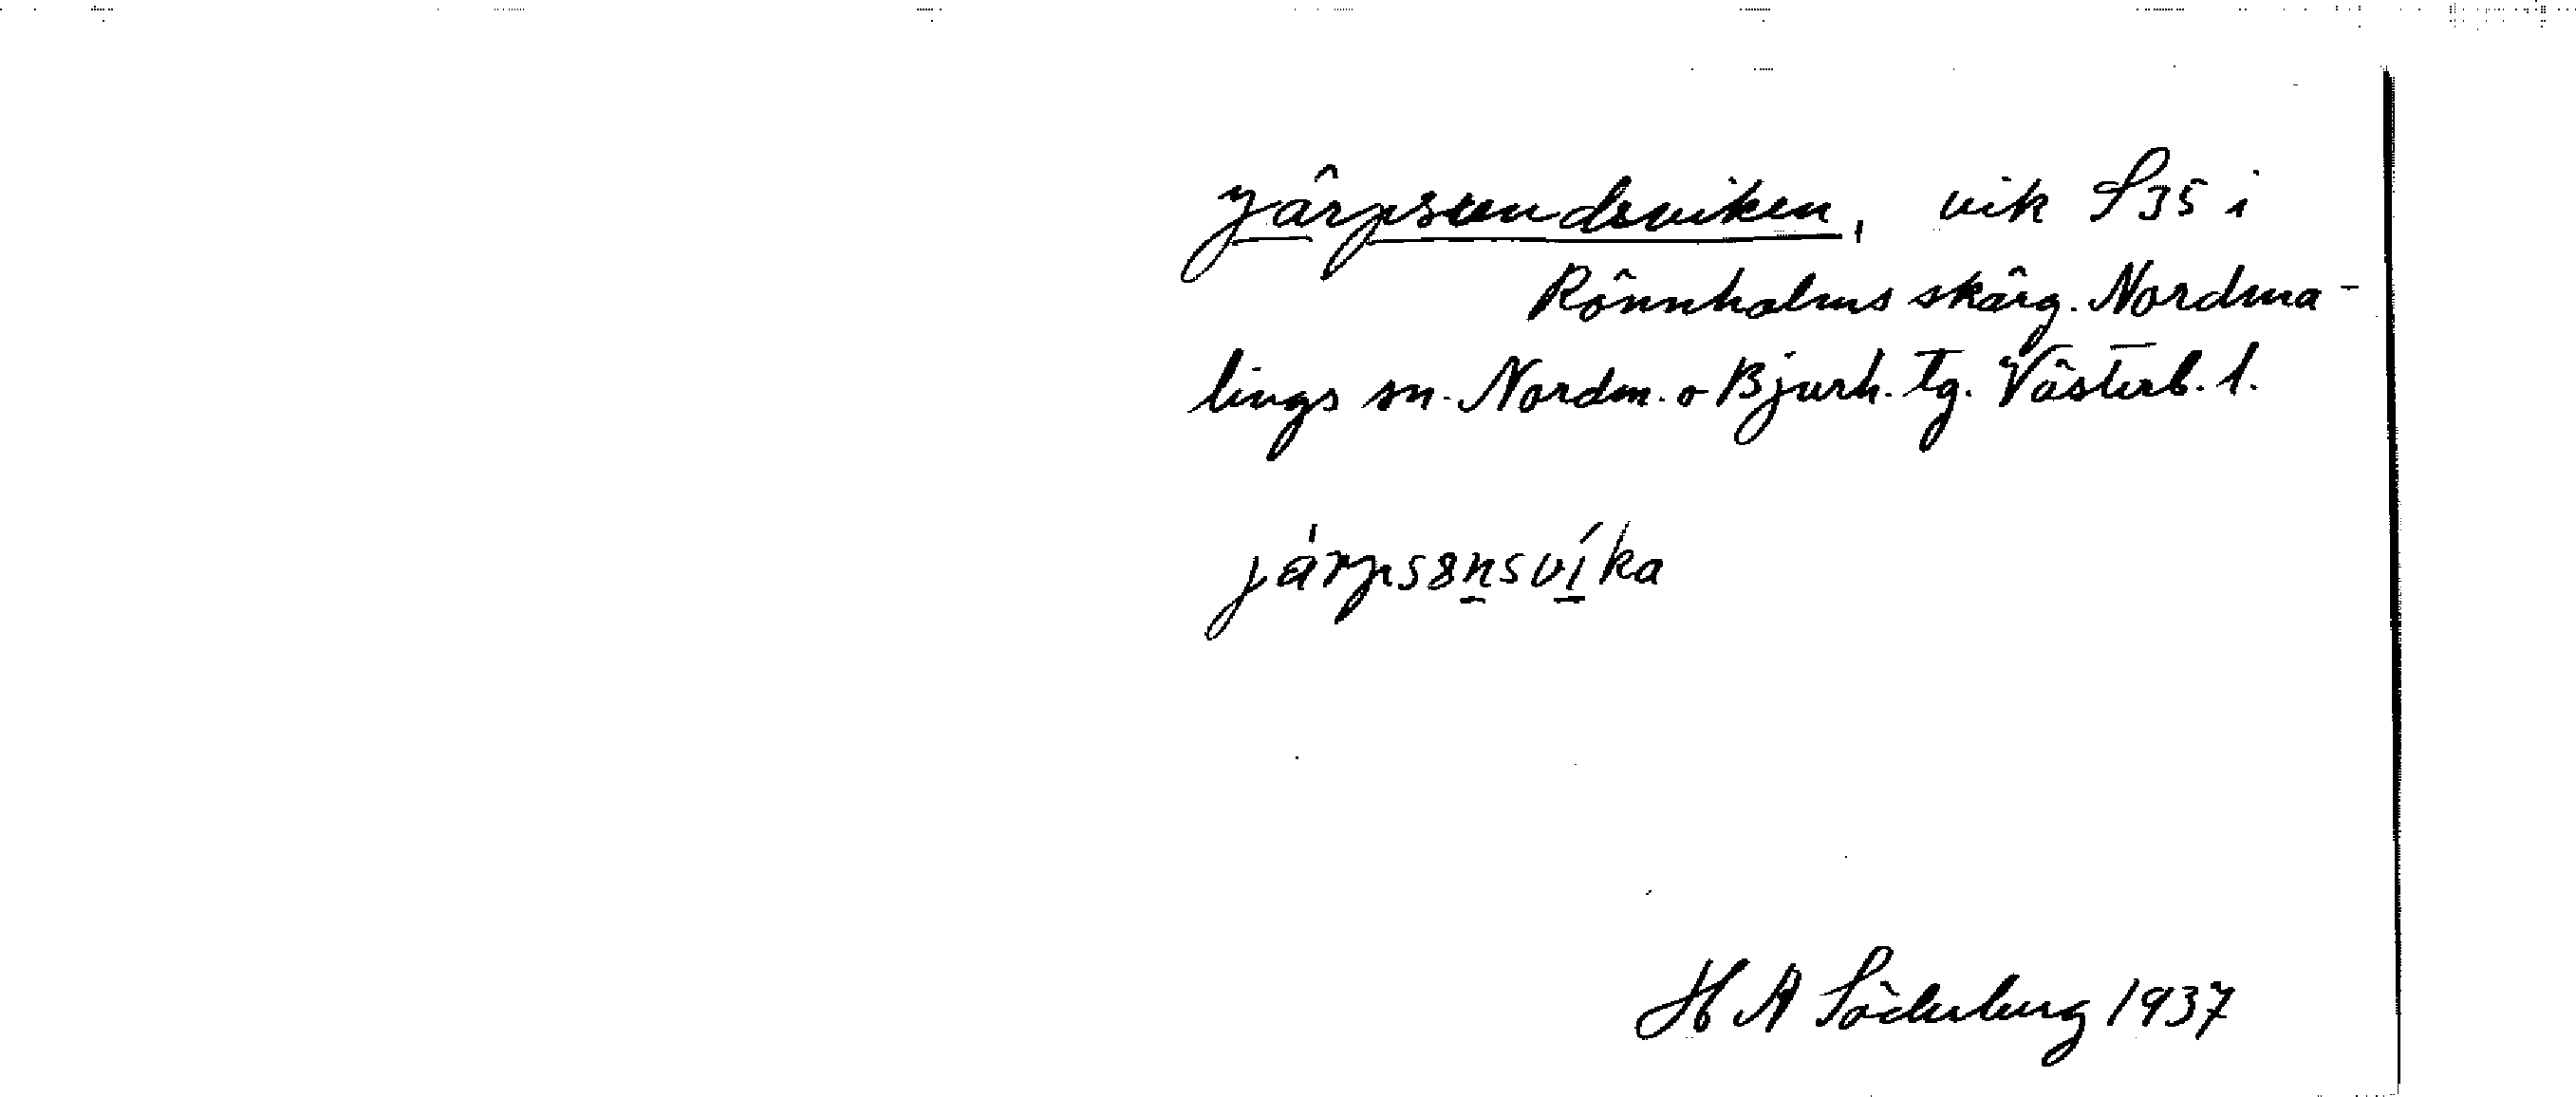 Järpsundsviken, vik S35 i
Rönnholms skärg. Nordma-
lings sn. Nordm. o Bjurh. tg. Västerb. l.
järps8n̲sví̲ka
H A Söderberg 1937